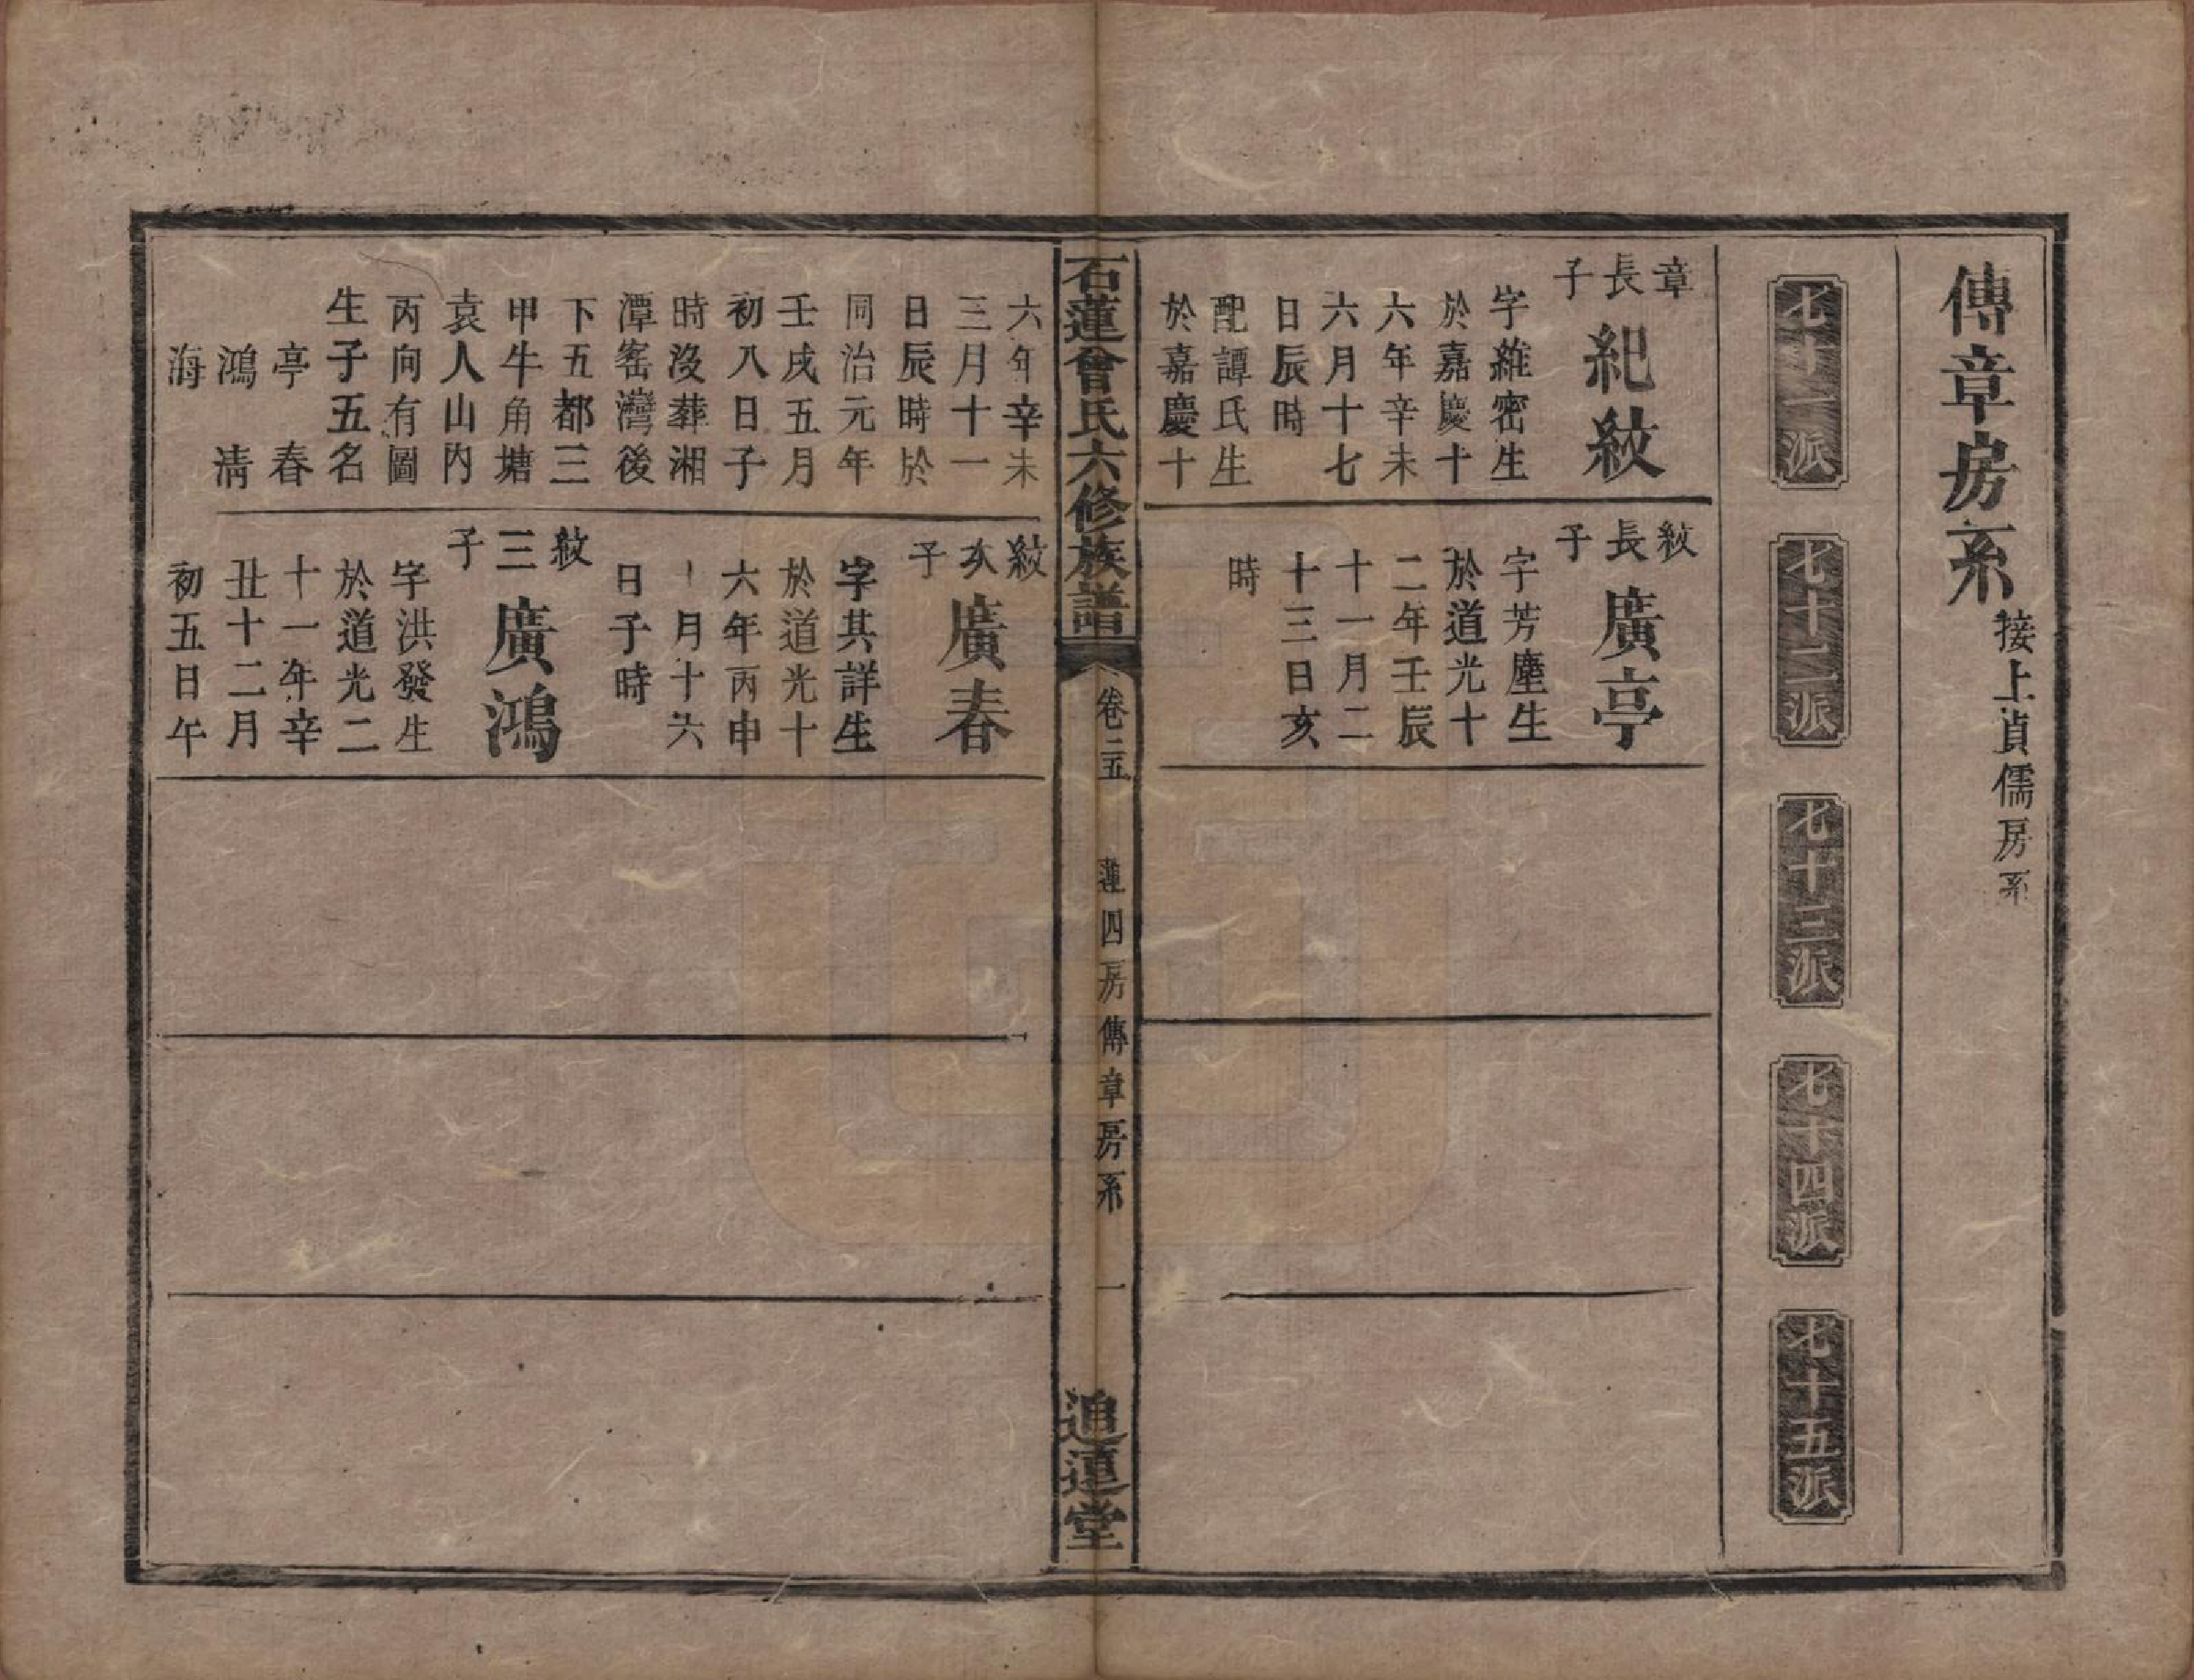 傳章房系接上貞儒房系
七十一派
七十二派
七十三派
七十四派
七十五派
章長子
紀紋
字維密生
於嘉慶十
六年辛未
六月十七
日辰時
配譚氏生
於嘉慶十
紋長子
廣亭
字芳塵生
於道光十
二年壬辰
十一月二
十三日亥
時
石蓮曾氏六修族譜
卷二五
蓮四房傳章房系
一
追蓮堂
六年辛未
三月十一
日辰時於
同治元年
壬戌五月
初八日子
時沒葬湘
潭窰灣後
下五都三
甲牛角塘
袁人山內
丙向有圖
生子五名
亭春
鴻清
海
紋次子
廣春
字其詳生
於道光十
六年丙申
十月十六
日子時
紋三子
廣鴻
字洪發生
於道光二
十一年辛
丑十二月
初五日午